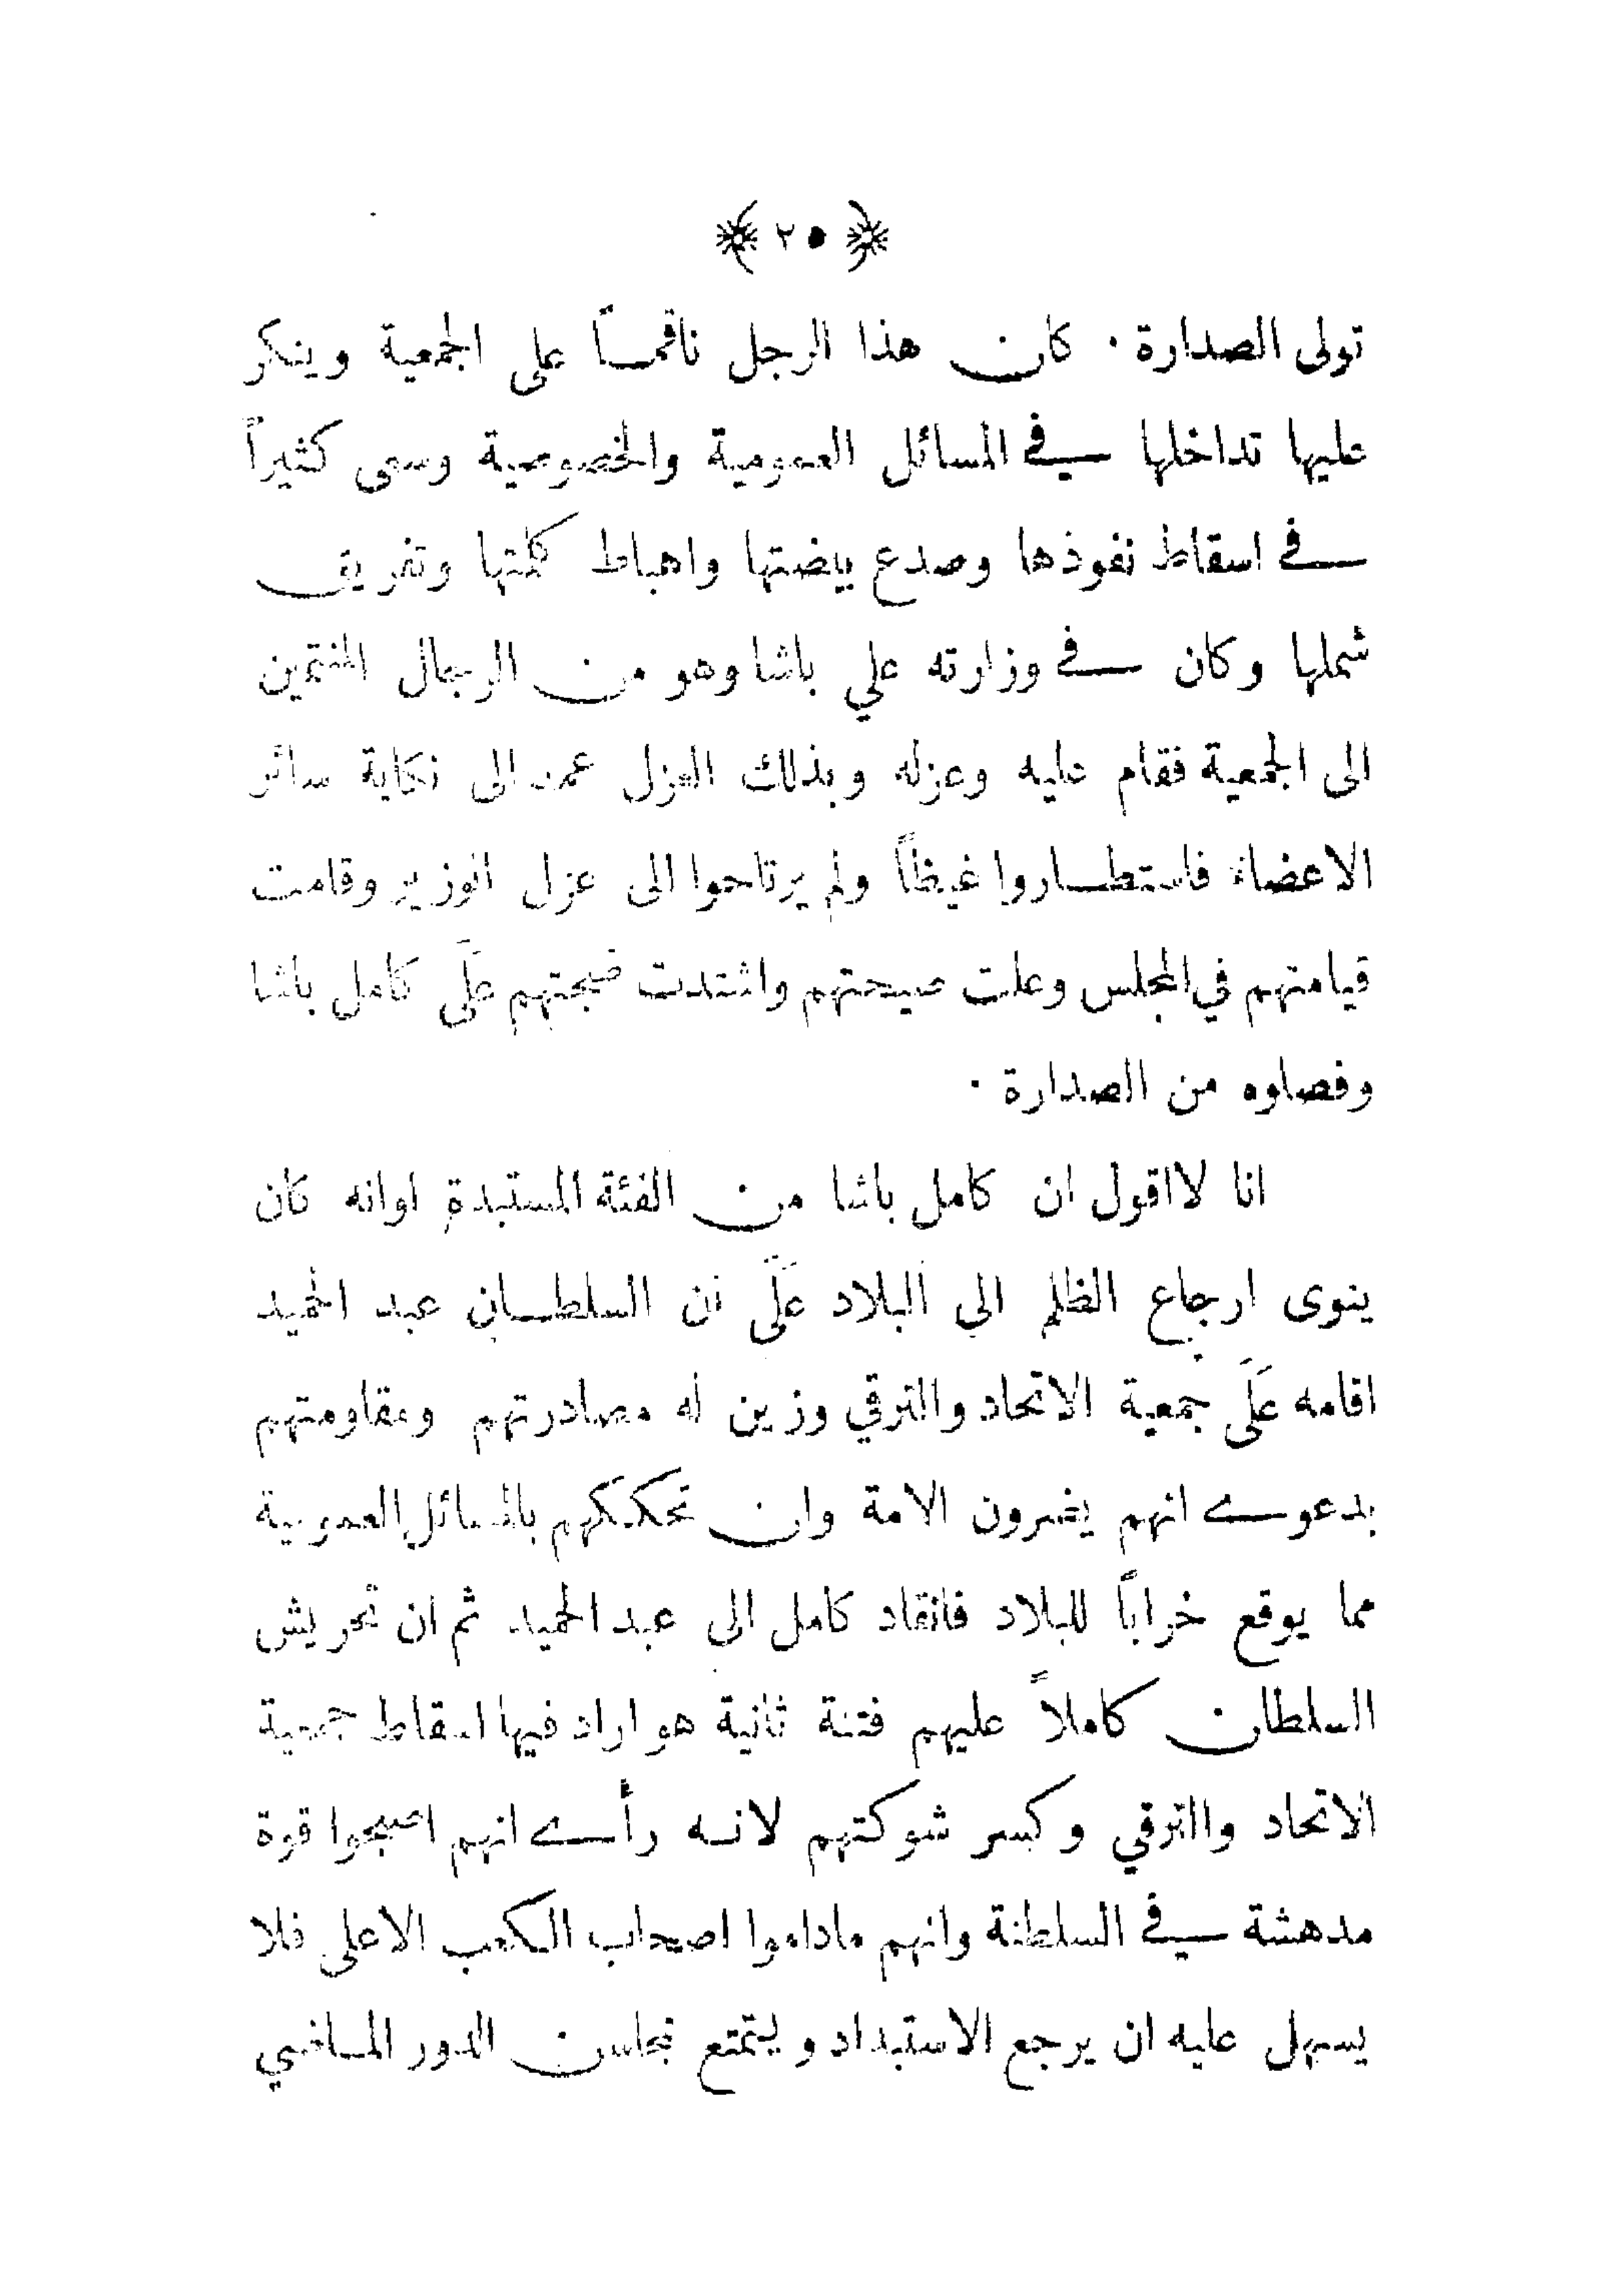 ﴿ ٢٥ ﴾
تولى الصدارة ٠ كان هذا الرجل ناقماً على الجمعية وينكر
عليها تداخلها في المسائل العمومية والخصوصية وسعى كثيراً
في اسقاط نفوذها وصدع بيضتها واهباط كلمتها وتفريف
شملها وكان في وزارته علي باشا وهو من الرجال المنتمين
الى الجمعية فقام عليه وعزله وبذلك العزل عمد الى نكاية سائر
الاعضاء فاستطاروا غيظاً ولم يرتاحوا الى عزل الوزير وقامت
قيامتهم في المجلس وعلت صيحتهم واشتدت ضجتهم عَلَى كامل باشا
وفصلوه من الصدارة ٠
انا لا اقول ان كامل باشا من الفئة المستبدة اوانه كان
ينوى ارجاع الظلم الى البلاد عَلَى ان السلطان عبد الحميد
اقامه عَلَى جمعية الاتحاد والترقي وزين له مصادرتهم ومقاومتهم
بدعوى انهم يضرون الامة وان تحككهم بالمسائل العمومية
مما يوقع خراباً للبلاد فانقاد كامل الى عبد الحميد ثم ان تحريش
السلطان كاملاً عليهم فتنة ثانية هو اراد فيها اسقاط جمعية
الاتحاد والترقي وكسر شوكتهم لانه رأى انهم اصبحوا قوة
مدهشة في السلطنة وانهم ماداموا اصحاب الكعب الاعلى فلا
يسهل عليه ان يرجع الاستبداد ويتمتع بمحاسن الدور الماضي